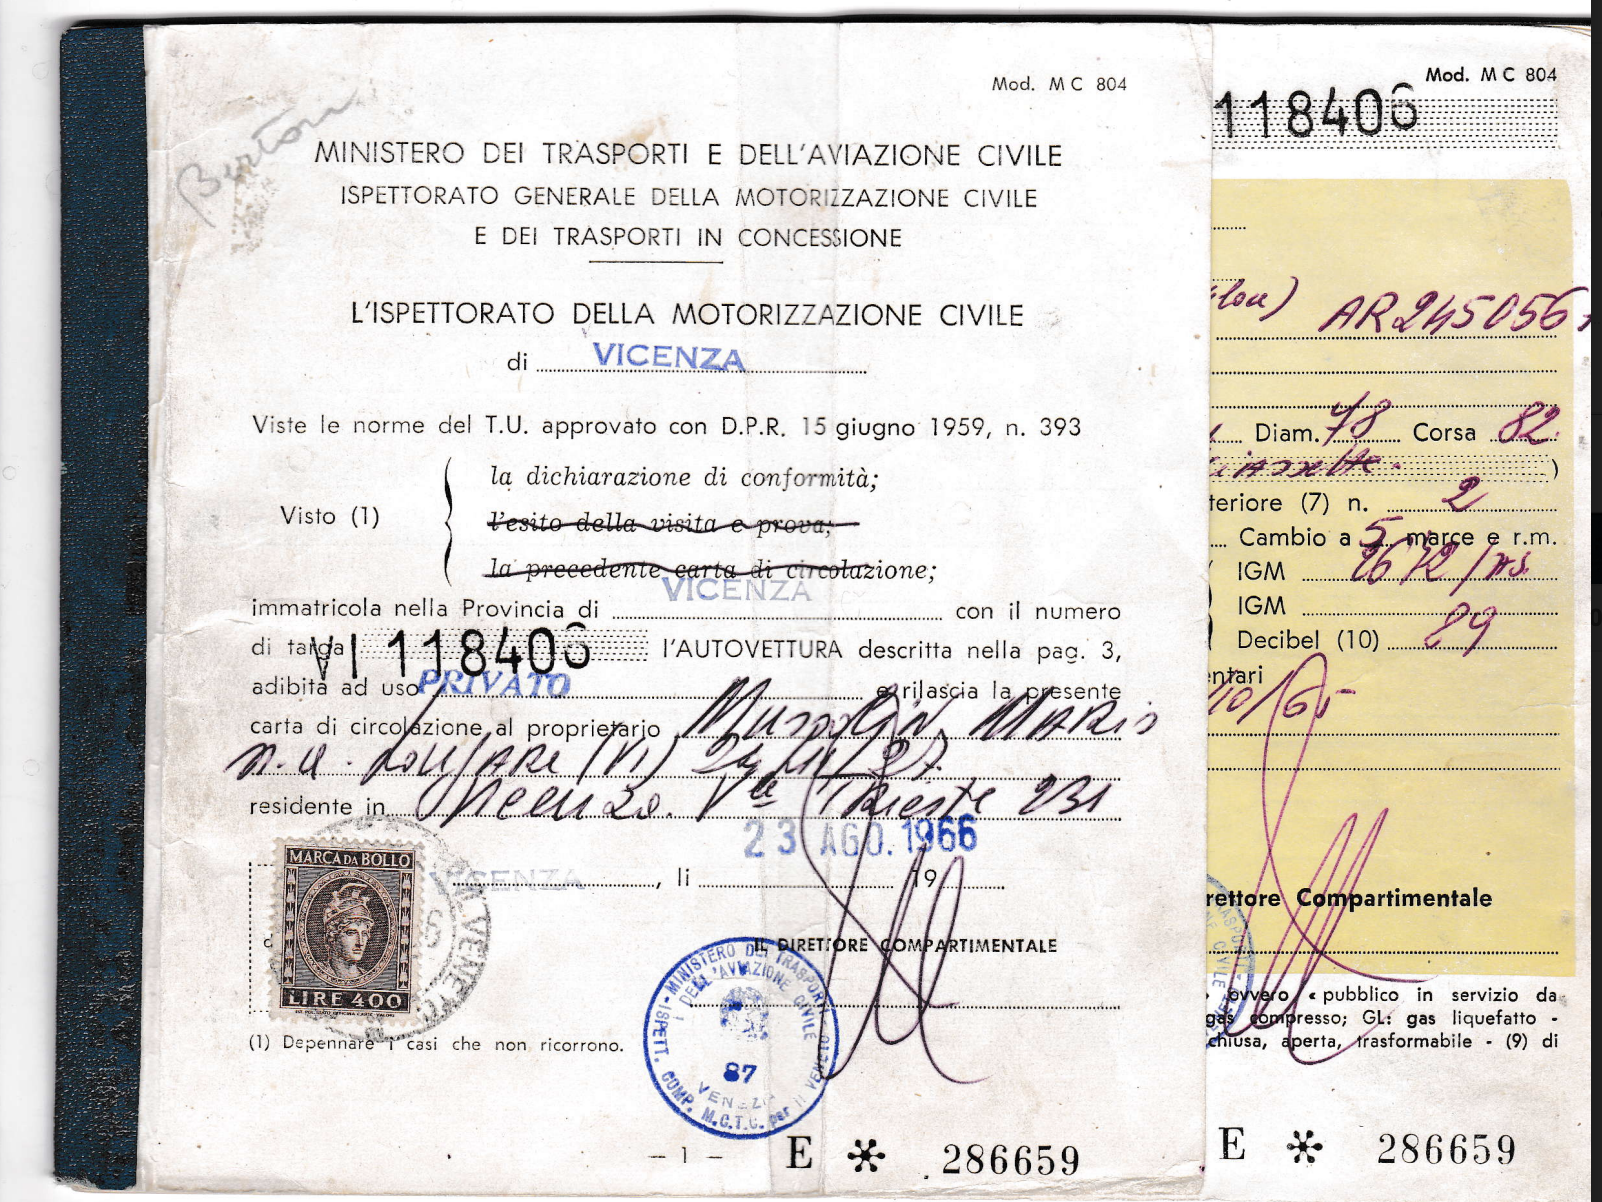 Mod. M C 804
Berton
MINISTERO DEI TRASPORTI E DELL'AVIAZIONE CIVILE
ISPETTORATO GENERALE DELLA MOTORIZZAZIONE CIVILE
E DEI TRASPORTI IN CONCESSIONE
L'ISPETTORATO DELLA MOTORIZZAZIONE CIVILE
di VICENZA
Viste le norme del T.U. approvato con D.P.R. 15 giugno 1959, n. 393
la dichiarazione di conformità;
Visto (1) l'esito della visita e prova;
la precedente carta di circolazione;
immatricola nella Provincia di VICENZA con il numero
di targa VI 118406 l'AUTOVETTURA descritta nella pag. 3,
adibita ad uso PRIVATO e rilascia la presente
carta di circolazione al proprietario Mussolin MARIO
n. a. LONGARE (VI)
residente in Vicenza. Via Trieste 231
23 AGO. 1966
VICENZA, li 19
MARCA DA BOLLO
LIRE 400
IL DIRETTORE COMPARTIMENTALE
MINISTERO DEI TRASPORTI
DELL'AVIAZIONE CIVILE
ISPETT. COMP. M.C.T.C. per il VENETO
87
VENEZIA
(1) Depennare i casi che non ricorrono.
– 1 – E * 286659
Mod. M C 804
118406
AR 245056
Diam. 78 Corsa 82
)
teriore (7) n. 2
Cambio a 5 marce e r.m.
IGM 2672/ms.
IGM
Decibel (10) 89
entari
10/65
rettore Compartimentale
ovvero « pubblico in servizio da
gas compresso; GL: gas liquefatto -
chiusa, aperta, trasformabile - (9) di
E * 286659